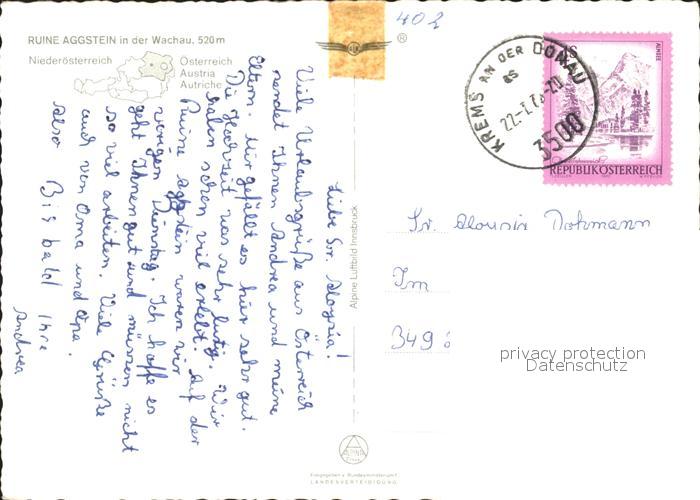 RUINE AGGSTEIN in der Wachau, 520 m
Niederösterreich
Österreich
Austria
Autriche
Liebe Sr. Aloysia!
Viele Urlaubsgrüße aus Österreich
sendet Ihnen Andrea und meine
Eltern. Mir gefällt es hier sehr gut.
Die Hochzeit war sehr lustig. Wir
haben schon viel erlebt. Auf der
Ruine Aggstein waren wir
vorigen Dienstag. Ich hoffe es
geht Ihnen gut und müssen nicht
so viel arbeiten. Viele Grüße
auch von Oma und Opa.
Also Bis bald Ihre
Andrea
Alpine Luftbild Innsbruck
®
KREMS AN DER DONAU
3500
REPUBLIK ÖSTERREICH
ALMSEE
Sr. Dohmann
Im
349
privacy protection
Datenschutz
ALPINE
Freigegeben v. Bundesministerium f.
LANDESVERTEIDIGUNG